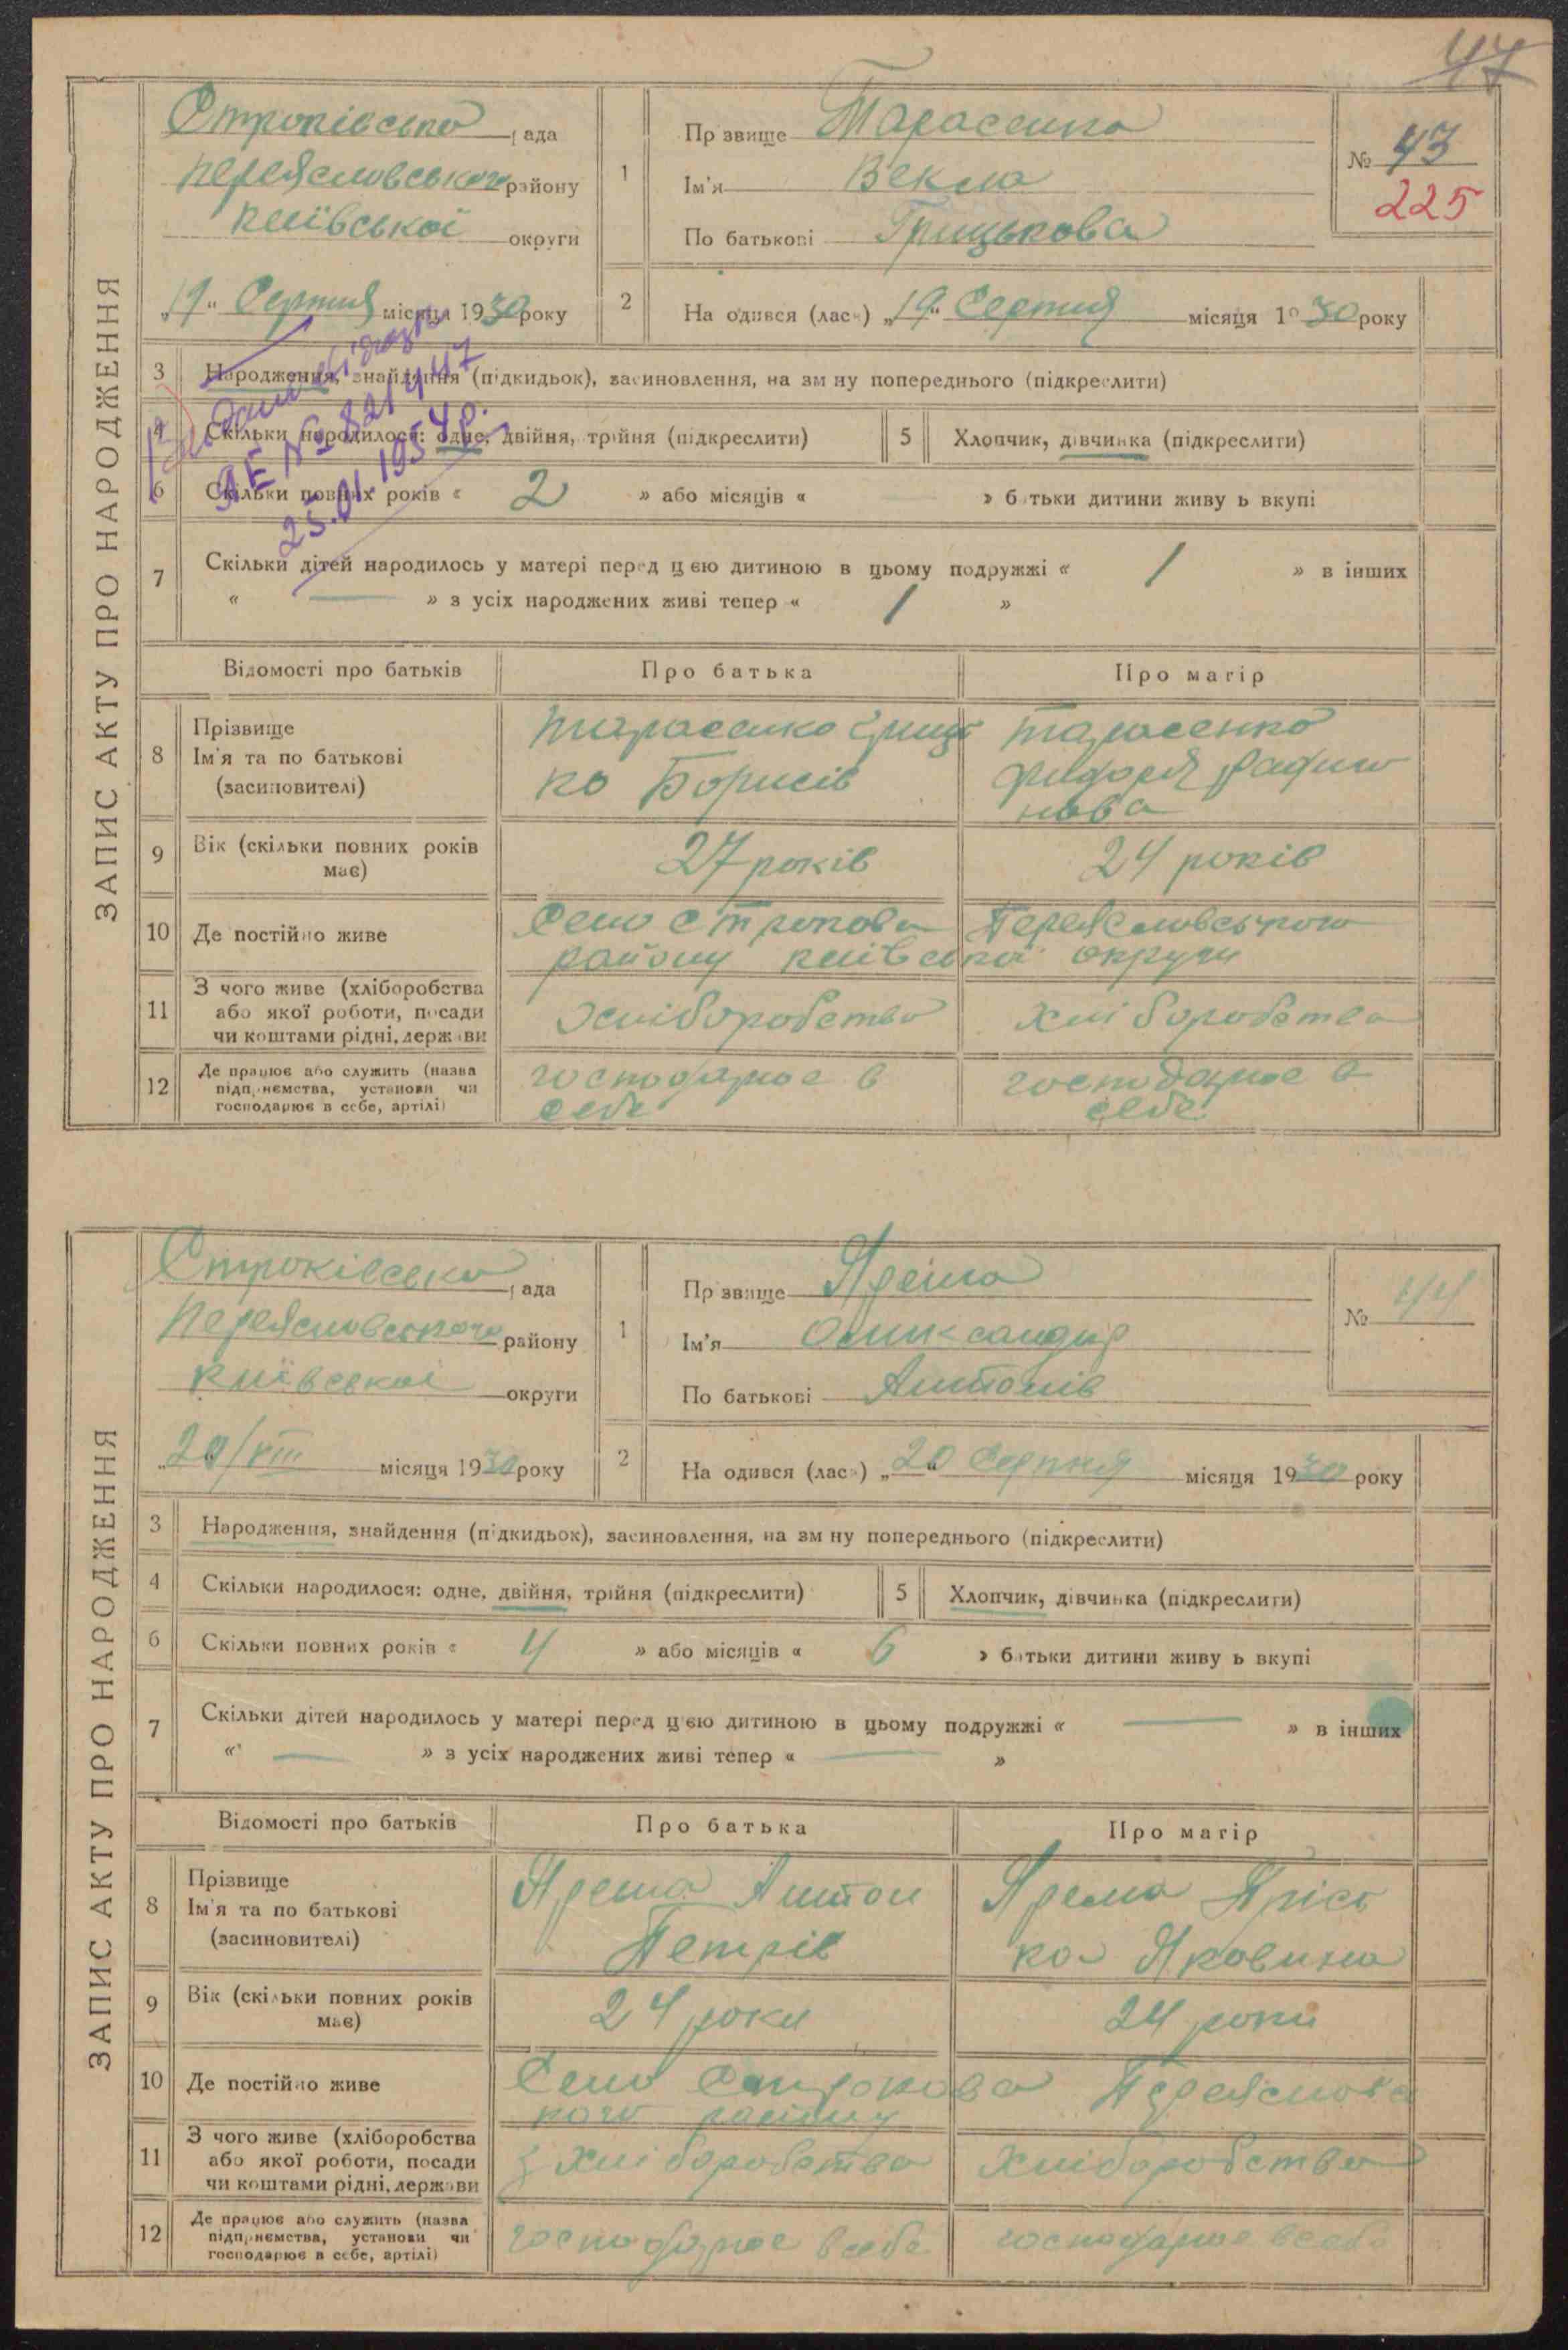 47
ЗАПИС АКТУ ПРО НАРОДЖЕННЯ
Строківська рада
Переясловського району
Київської округи
„19“ Серпня місяця 1930 року
1
Прізвище Тарасенко
Ім'я Векла
По батькові Грицькова
№ 43
225
2
На одився (лась) „19“ Серпня місяця 1930 року
3 Народження, знайдення (підкидьок), засиновлення, на зм ну попереднього (підкреслити)
4 Скільки народилося: одне, двійня, трійня (підкреслити)
5 Хлопчик, дівчинка (підкреслити)
6 Скільки повних років « 2 » або місяців « » батьки дитини живу ь вкупі
7 Скільки дітей народилось у матері перед цією дитиною в цьому подружжі « 1 » в інших
« — » з усіх народжених живі тепер « 1 »
ЯЕ № 821447
25.01.1954 р.
Відомості про батьків Про батька Про матір
8 Прізвище
Ім'я та по батькові
(засиновителі)
Тарасенко Гриць
ко Борисів
Тарасенко
нова
9 Вік (скільки повних років
має)
27 років
24 років
10 Де постійно живе
Село Строкова Переясловського
району київської округи
11 З чого живе (хліборобства
або якої роботи, посади
чи коштами рідні, держави
Хліборобства
хліборобства
12 Де працює або служить (назва
підприємства, установи чи
господарює в себе, артілі)
господарює в
себе
господарює в
себе
ЗАПИС АКТУ ПРО НАРОДЖЕННЯ
Строківська рада
Переясловського району
Київської округи
„20/VIII місяця 1930 року
1
Прізвище Ярема
Ім'я Олександр
По батькові Антонів
№ 44
2
На одився (лась) „20“ Серпня місяця 1930 року
3 Народження, знайдення (підкидьок), засиновлення, на зм ну попереднього (підкреслити)
4 Скільки народилося: одне, двійня, трійня (підкреслити)
5 Хлопчик, дівчинка (підкреслити)
6 Скільки повних років « 4 » або місяців « 6 » батьки дитини живу ь вкупі
7 Скільки дітей народилось у матері перед цією дитиною в цьому подружжі « — » в інших
« — » з усіх народжених живі тепер « — »
Відомості про батьків Про батька Про матір
8 Прізвище
Ім'я та по батькові
(засиновителі)
Ярема Антон
Петрів
Ярема Пріс
ка Яковина
9 Вік (скільки повних років
має)
24 роки
24 роки
10 Де постійно живе
Село Строкова Переяслова
кого району
11 З чого живе (хліборобства
або якої роботи, посади
чи коштами рідні, держави
з хліборобства
хліборобства
12 Де працює або служить (назва
підприємства, установи чи
господарює в себе, артілі)
господарює в себе
господарює в себе